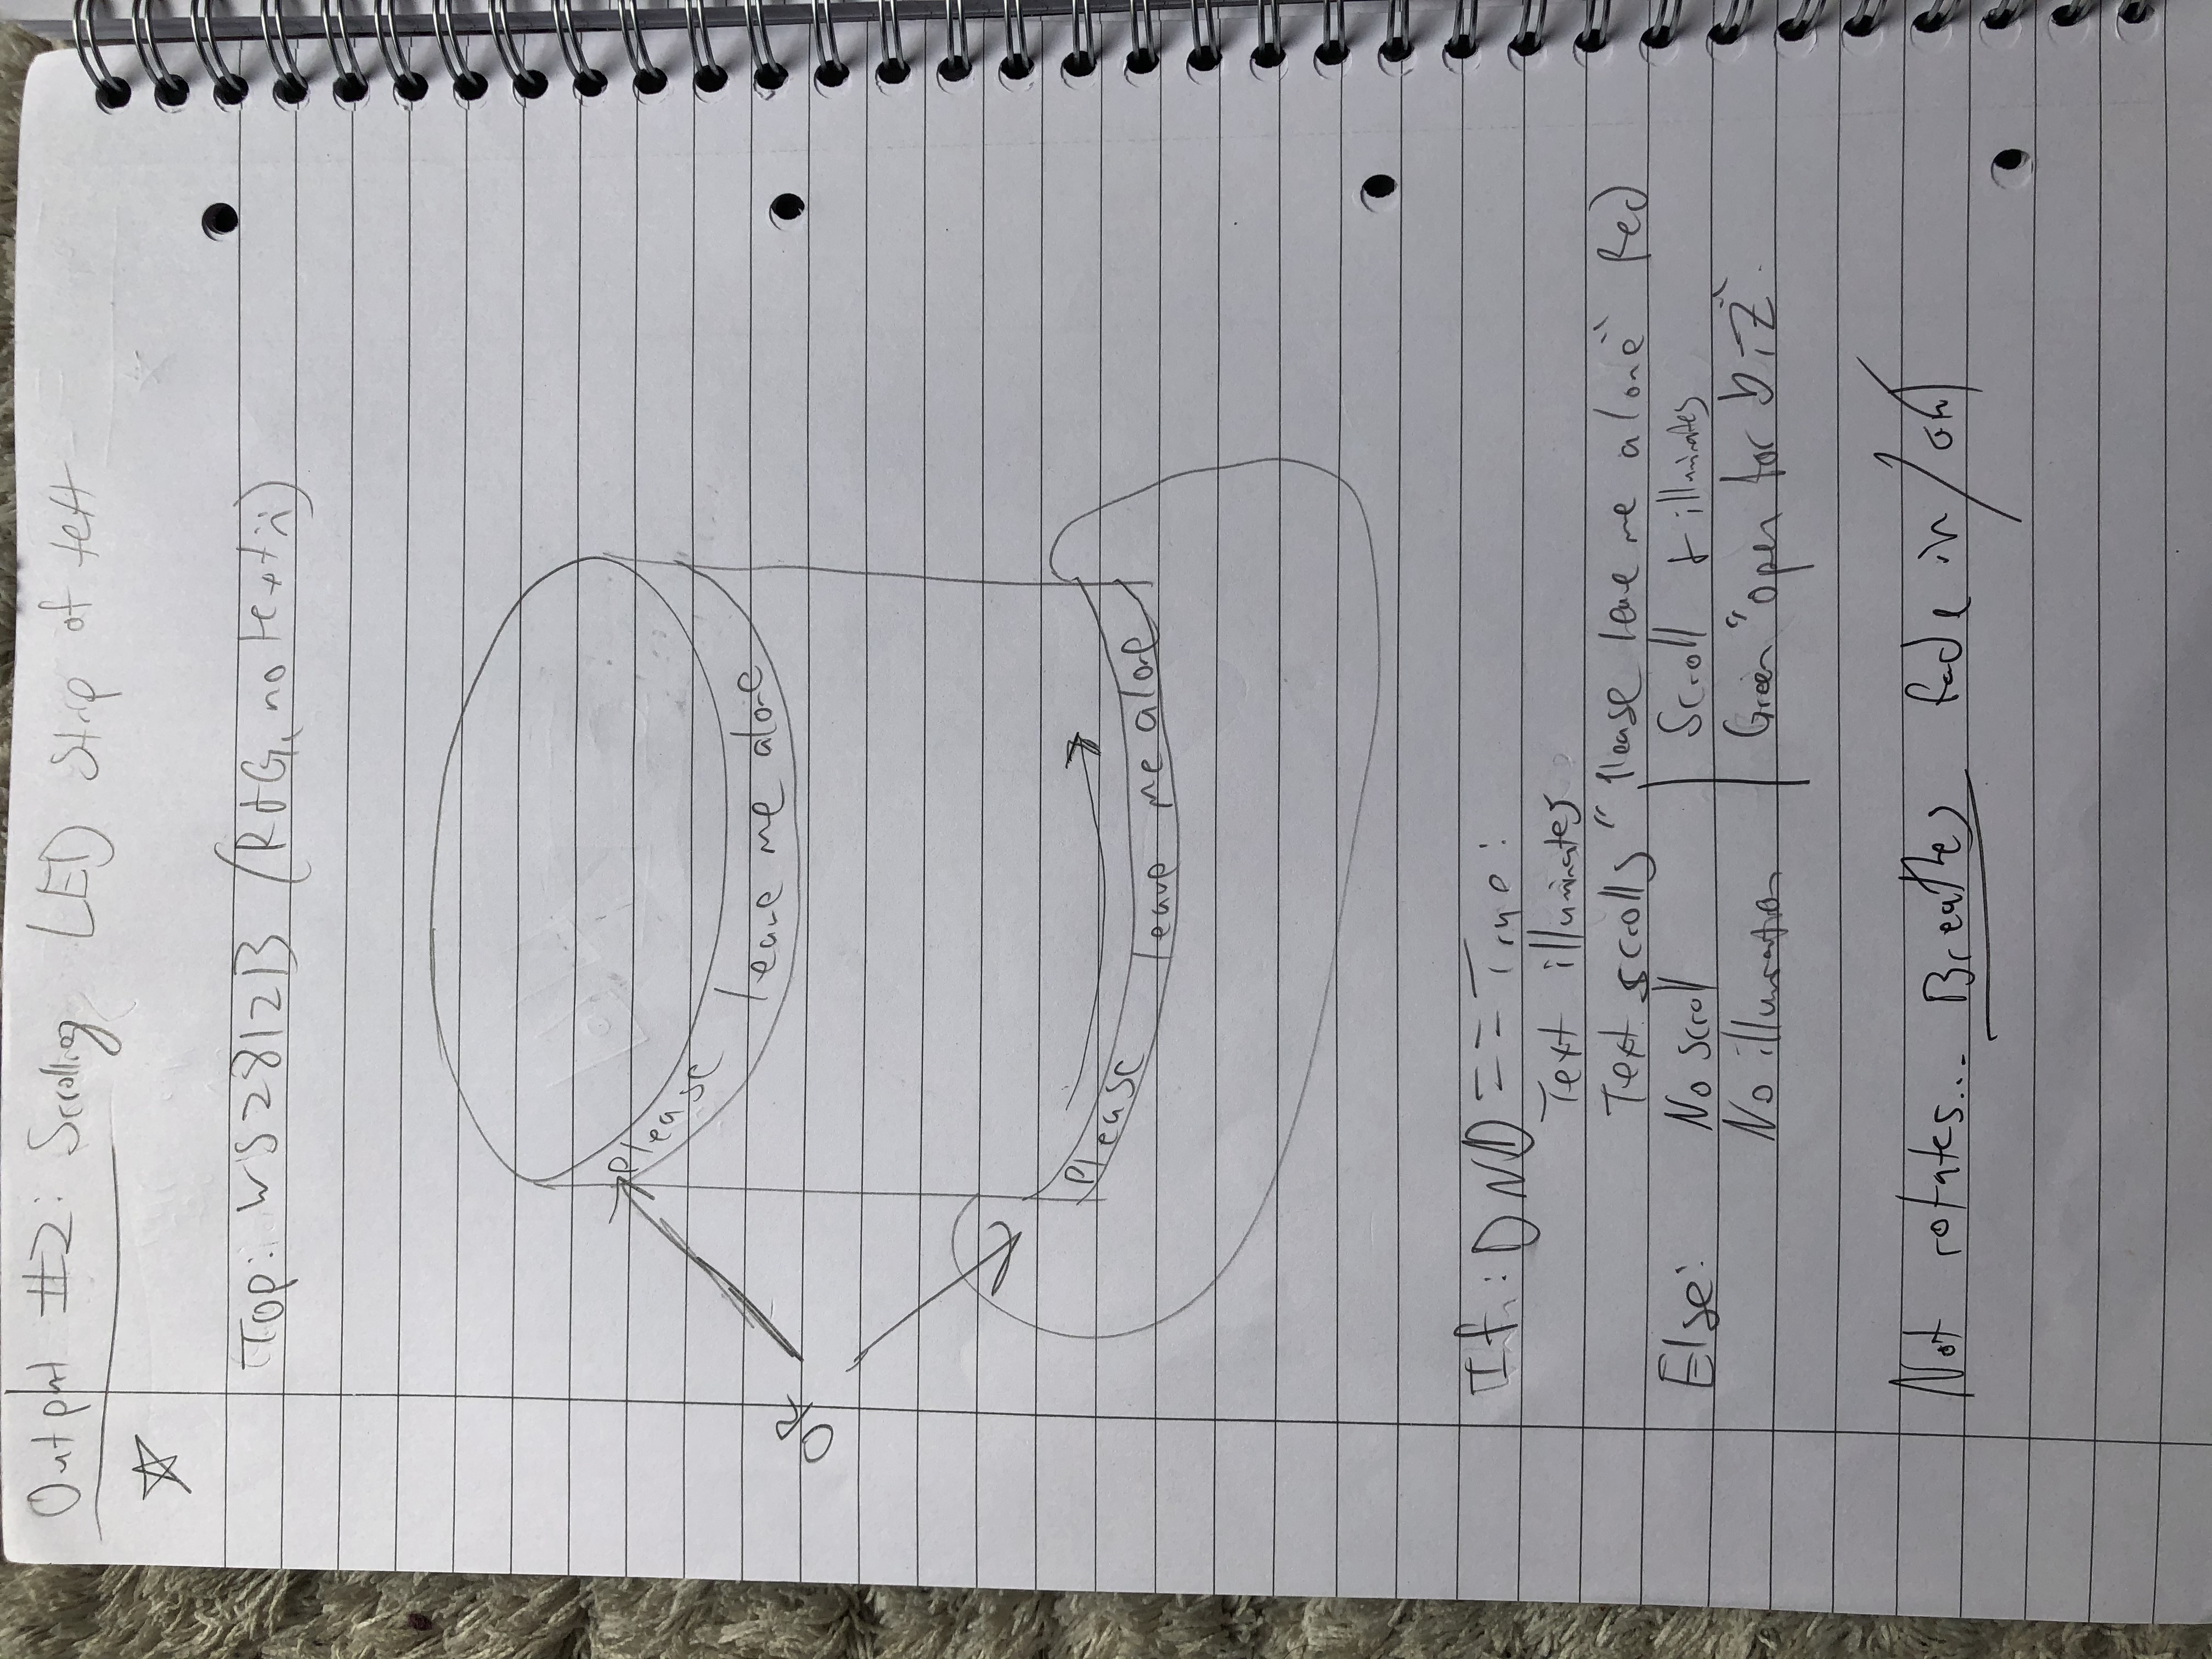 Output #2: Scrolling LED Strip of text
Top: WS2812B (R+G, no text :()
Please leave me alone
OR
Please leave me alone
If: DND == True:
Text illuminates
Text scrolls "Please leave me alone" Red
Else: No scroll | Scroll + illuminates
No illumination | Green "open for biz"
Not rotates... Breathes fade in/out